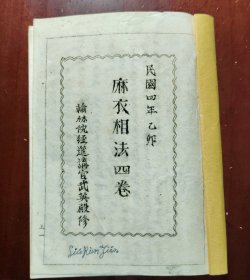 民國四年乙卯
麻衣相法四卷
翰林院經選講官武英殿修